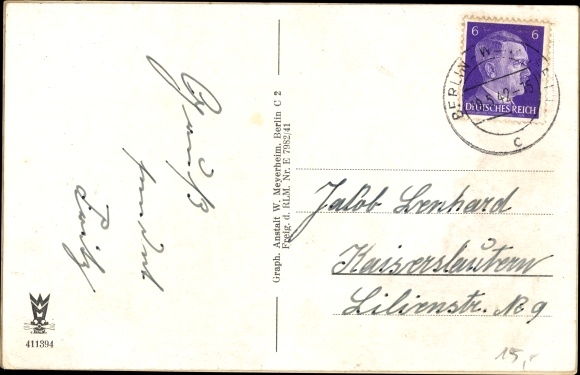 6 6
DEUTSCHES REICH
BERLIN W
5.42
c
Gruß
sendet
Fritz
Graph. Anstalt W. Meyerheim, Berlin C 2
Freig. d. RLM. Nr. E 7982/41
Jakob Lenhard
Kaiserslautern
Lilienstr. No 9
411394
15,-